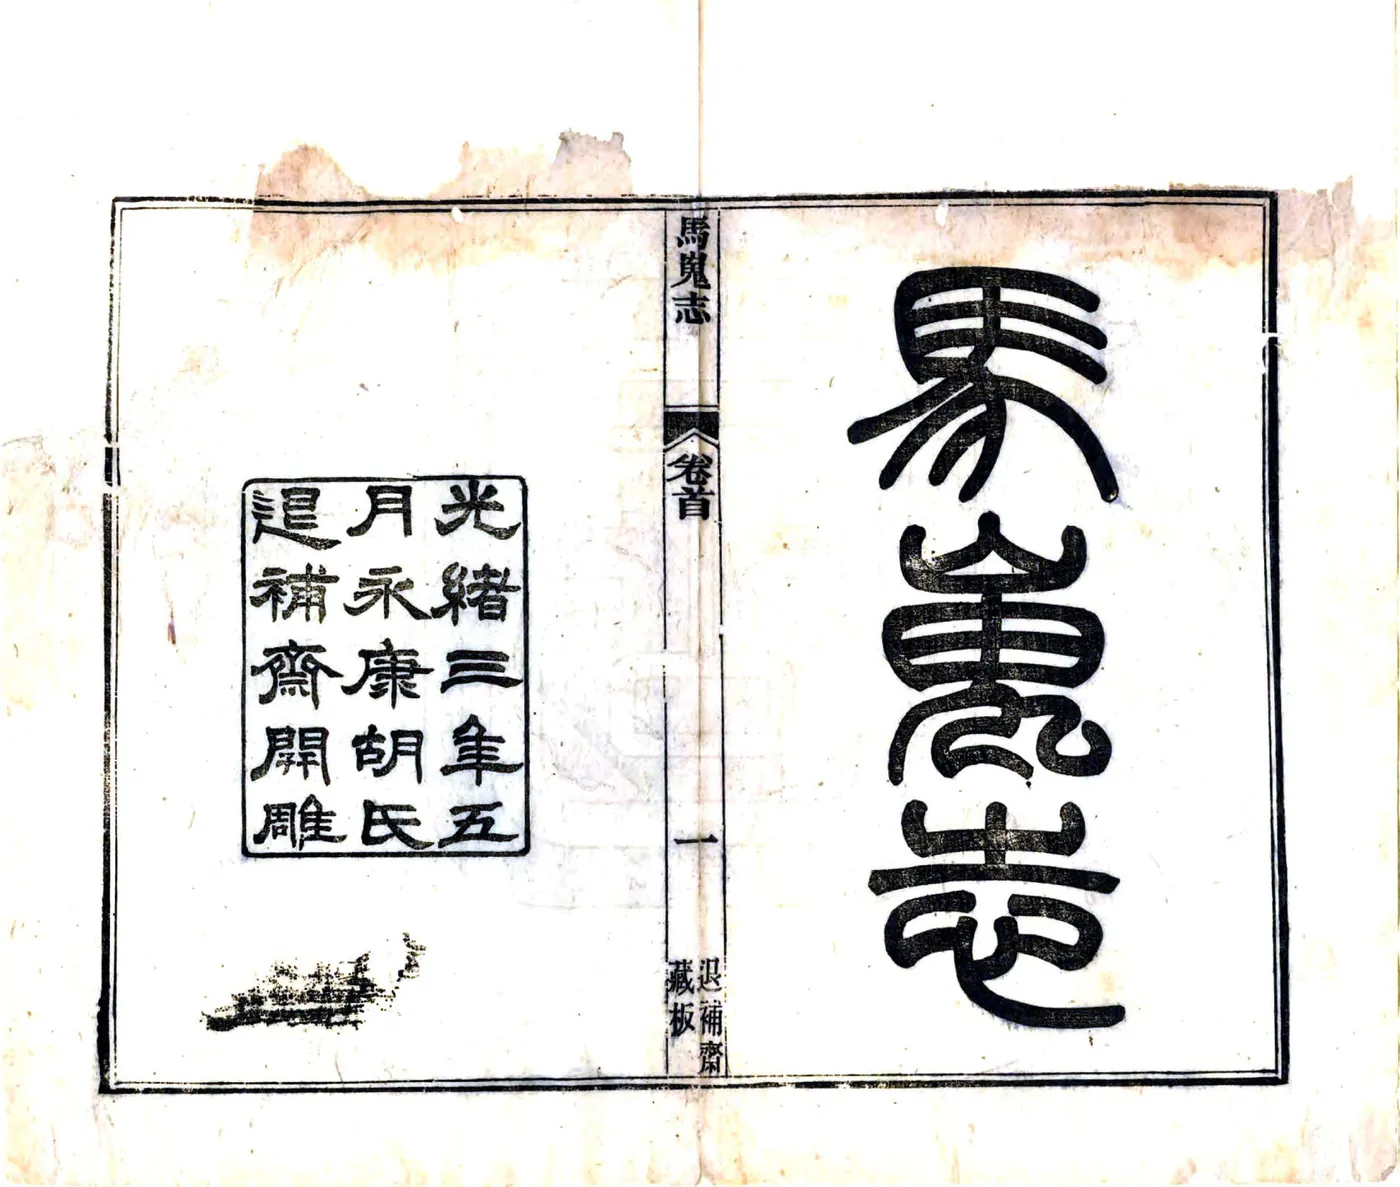 馬嵬志
馬嵬志
卷首
一
退補齋
藏板
光緒三年五
月永康胡氏
退補齋開雕